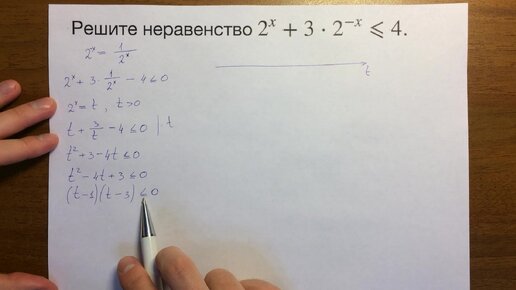 Решите неравенство 2ˣ + 3 · 2⁻ˣ ⩽ 4.
2ˣ = 1/2ˣ
2ˣ + 3 · 1/2ˣ − 4 ≤ 0
2ˣ = t , t > 0
t + 3/t − 4 ≤ 0 | t
t² + 3 − 4t ≤ 0
t² − 4t + 3 ≤ 0
(t − 1)(t − 3) ≤ 0
t